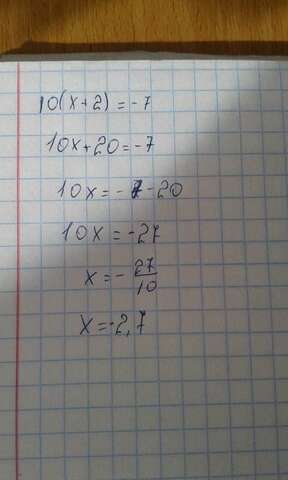 10(x+2)=-7
10x+20=-7
10x=-7-20
10x=-27
x=-27/10
x=-2,7